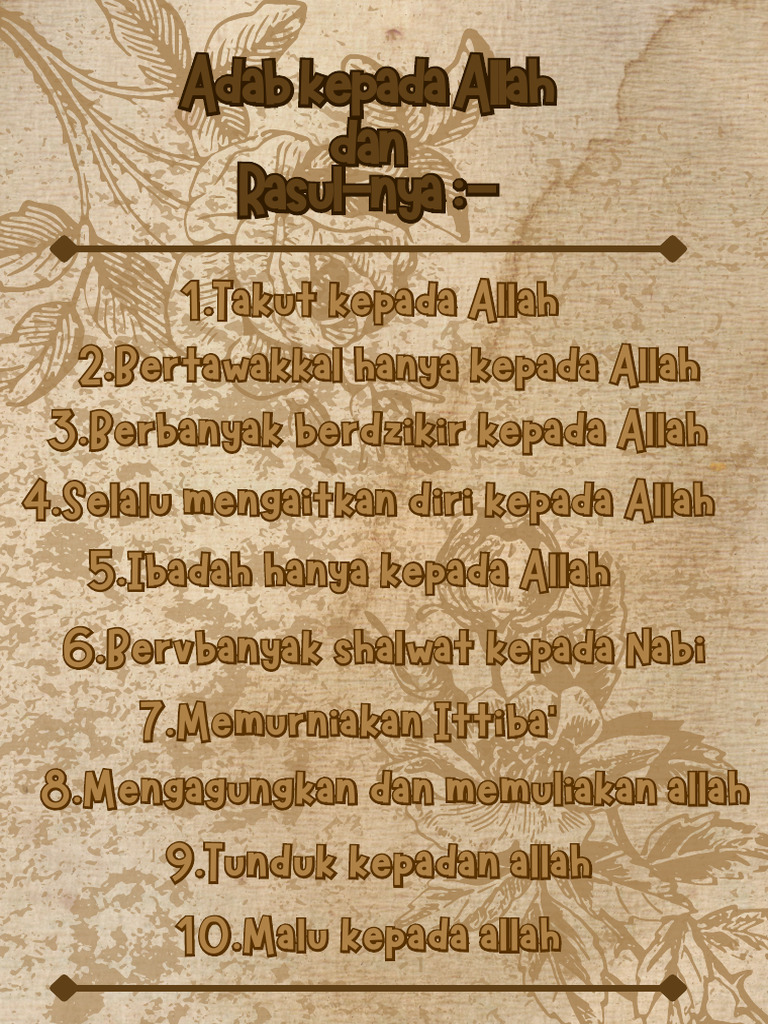 Adab kepada Allah
dan
Rasul-nya :-
1.Takut kepada Allah
2.Bertawakkal hanya kepada Allah
3.Berbanyak berdzikir kepada Allah
4.Selalu mengaitkan diri kepada Allah
5.Ibadah hanya kepada Allah
6.Bervbanyak shalwat kepada Nabi
7.Memurniakan Ittiba'
8.Mengagungkan dan memuliakan allah
9.Tunduk kepadan allah
10.Malu kepada allah